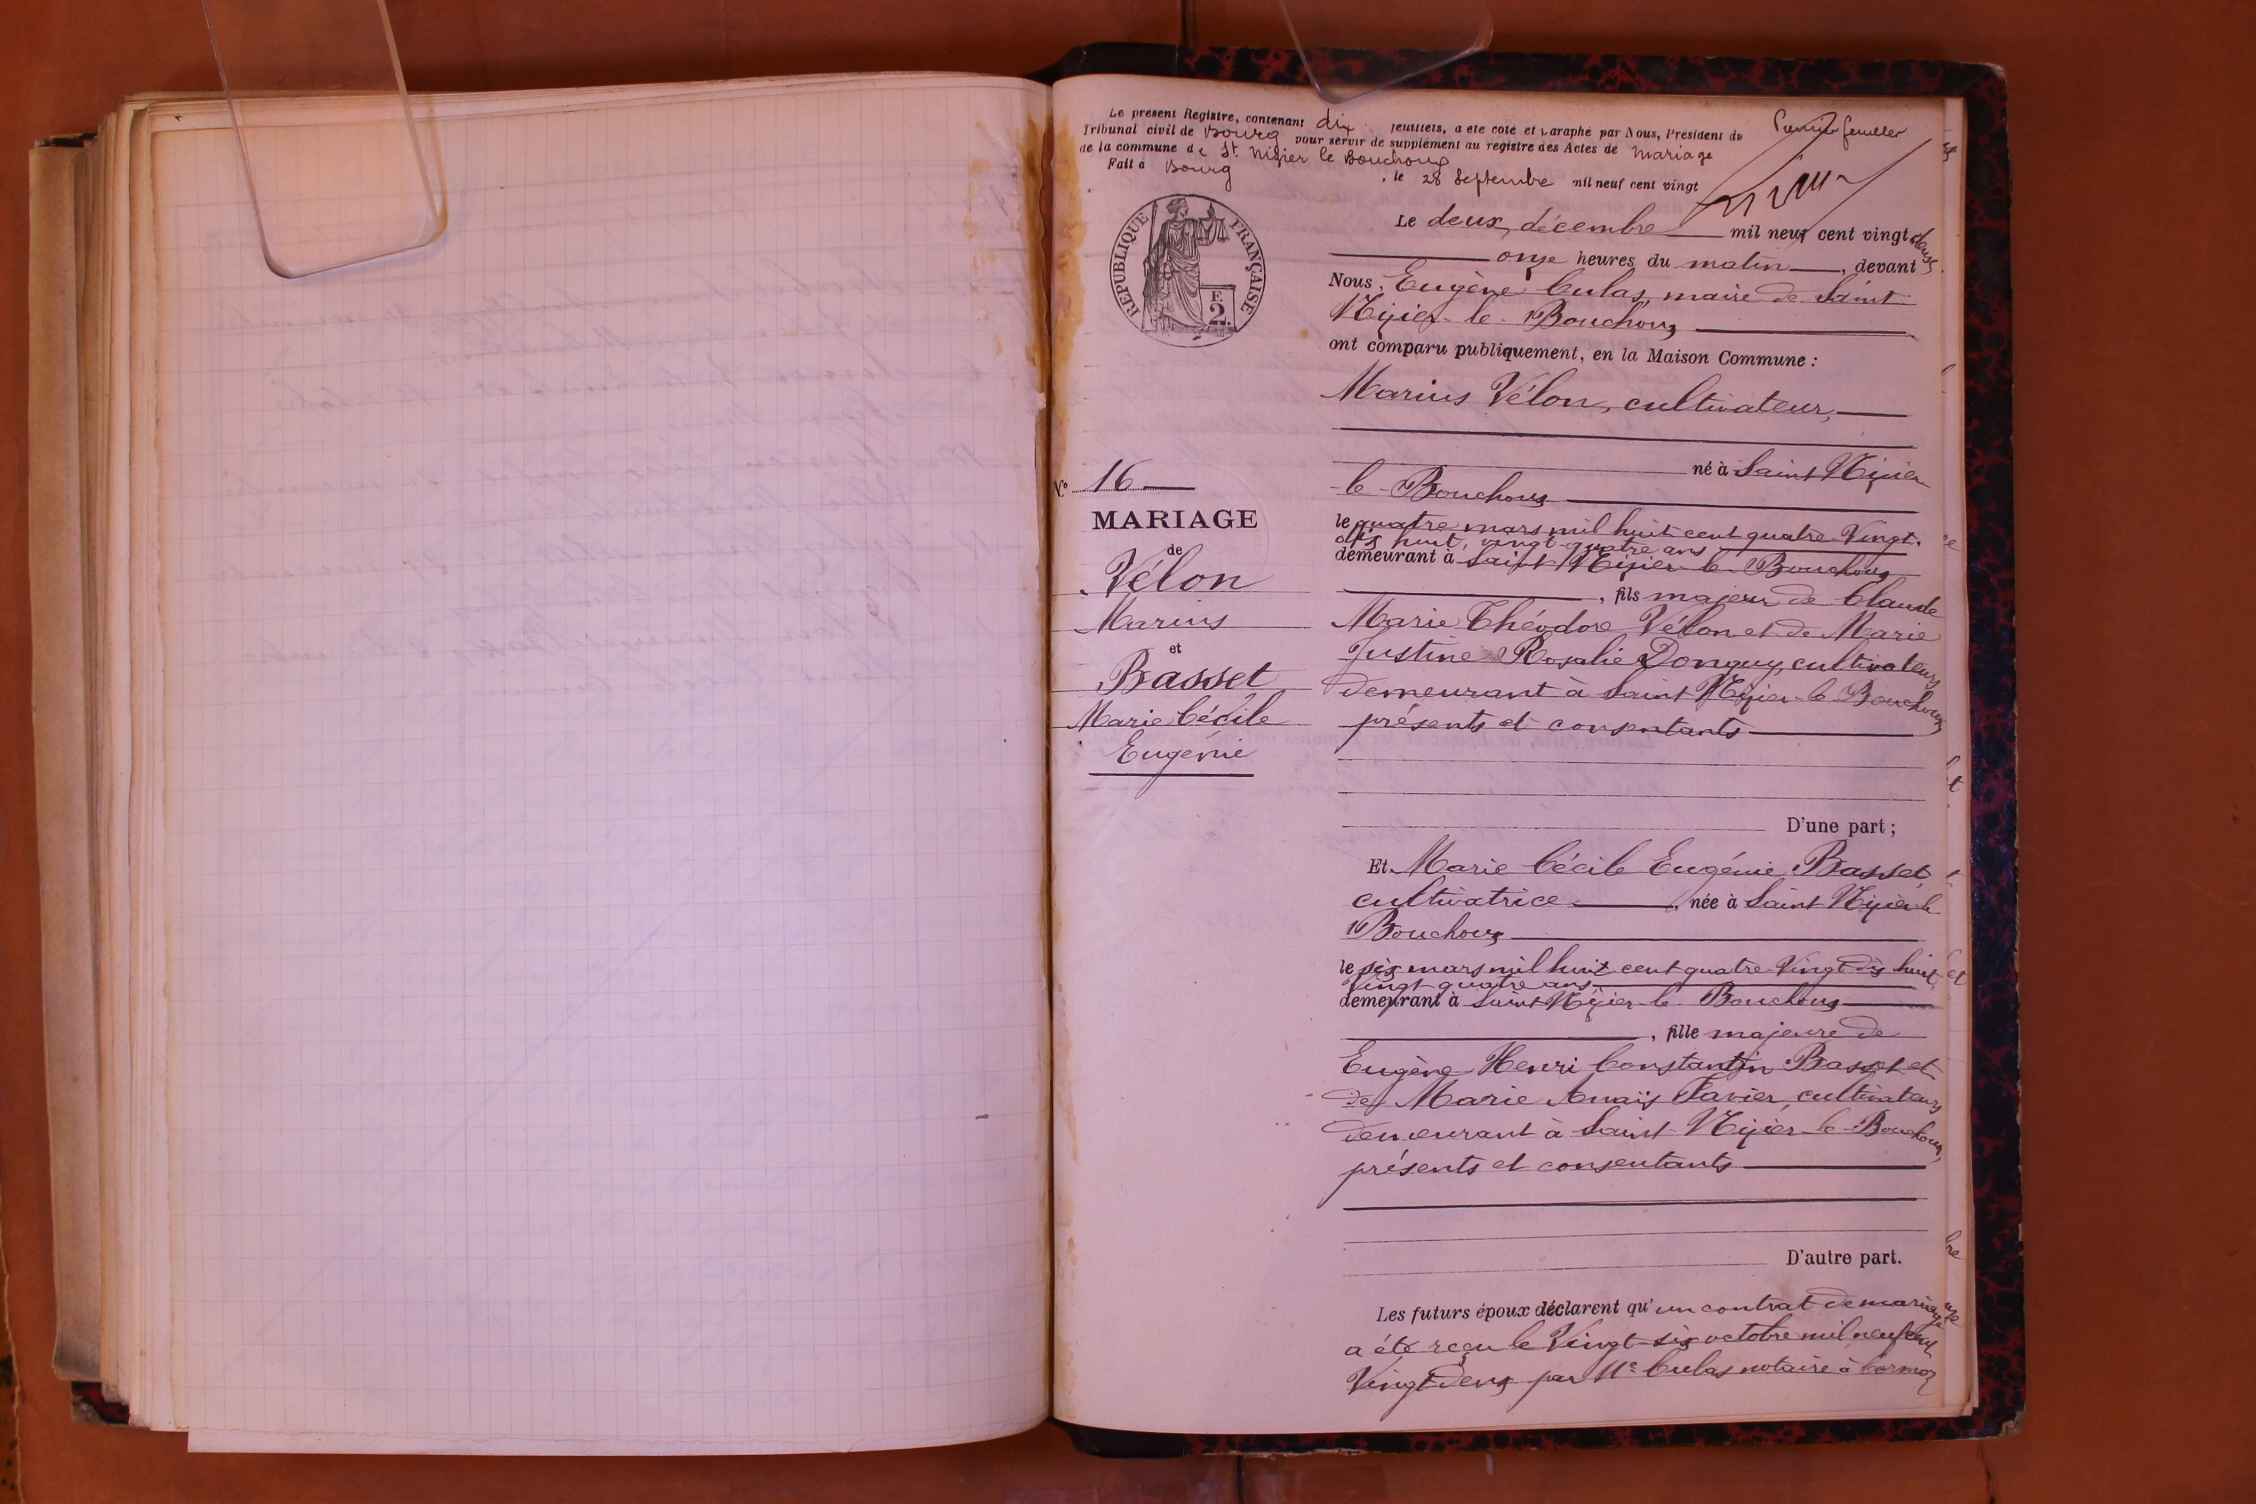 Le présent Registre, contenant dix feuillets, a été coté et paraphé par Nous, Président du
Tribunal civil de Bourg pour servir de supplément au registre des Actes de Mariage
de la commune de St. Nizier le Bouchoux
Fait à Bourg, le 28 Septembre mil neuf cent vingt
Premier feuillet
REPUBLIQUE FRANÇAISE
F.
2.
Le deux décembre mil neuf cent vingt deux
onze heures du matin, devant
Nous, Eugène Culas, maire de Saint
Nizier-le-Bouchoux
ont comparu publiquement, en la Maison Commune :
Marius Vélon, cultivateur,
né à Saint Nizier
le Bouchoux
le quatre mars mil huit cent quatre Vingt.
dix huit, vingt-quatre ans
demeurant à Saint Nizier-le-Bouchoux
, fils majeur de Claude
Marie Théodore Vélon et de Marie
Justine Rosalie Donguy, cultivateurs
demeurant à Saint Nizier-le-Bouchoux
présents et consentants
D'une part ;
No 16
MARIAGE
de
Vélon
Marius
et
Basset
Marie Cécile
Eugénie
Et Marie Cécile Eugénie Basset,
cultivatrice, née à Saint Nizier-le
Bouchoux
le six mars mil huit cent quatre Vingt dix huit,
Vingt quatre ans
demeurant à Saint Nizier-le-Bouchoux
, fille majeure de
Eugène Henri Constantin Basset et
de Marie Anaïs Favier, cultivateurs
demeurant à Saint-Nizier-le-Bouchoux,
présents et consentants
D'autre part.
Les futurs époux déclarent qu'un contrat de mariage
a été reçu le Vingt-six octobre mil neuf cent
Vingt deux par Me Culas notaire à Cormoz